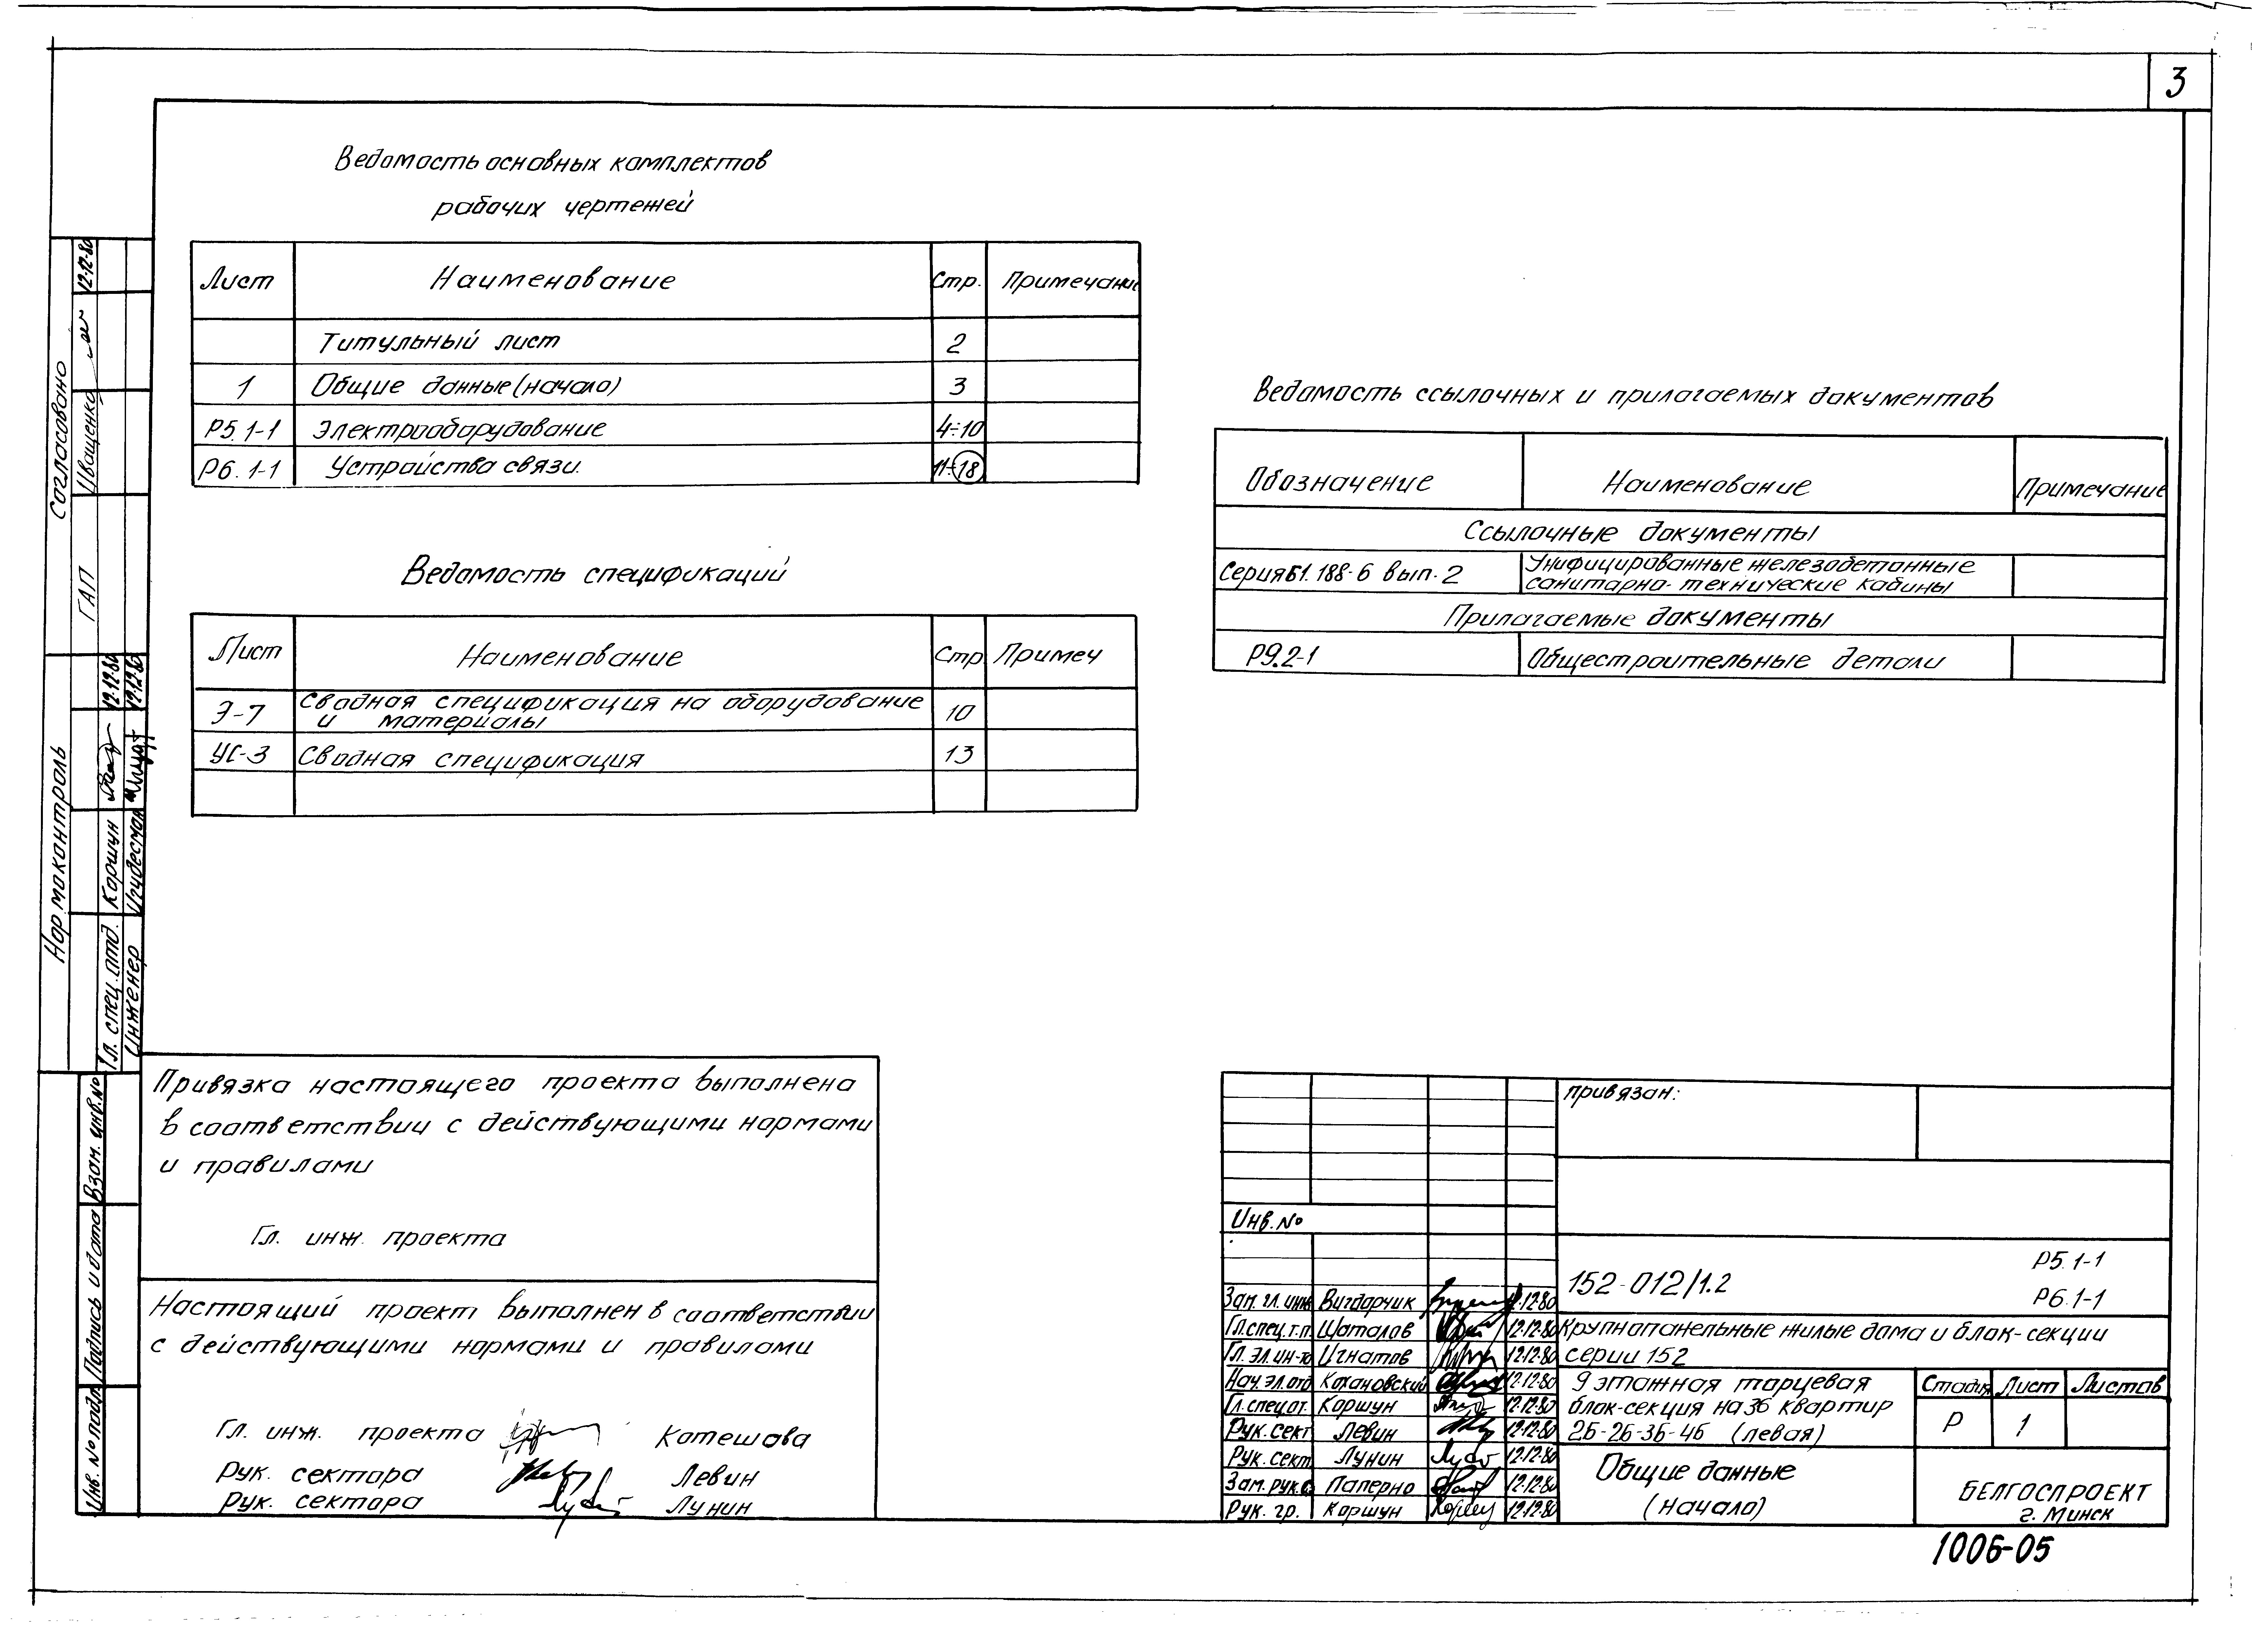 3
Ведомость основных комплектов
рабочих чертежей
Лист Наименование Стр. Примечание
Титульный лист 2
1 Общие данные (начало) 3
Р5.1-1 Электрооборудование 4÷10
Р6.1-1 Устройства связи. 11÷18
Ведомость спецификаций
Лист Наименование Стр. Примеч
Э-7 Сводная спецификация на оборудование
и материалы 10
УС-3 Сводная спецификация 13
Ведомость ссылочных и прилагаемых документов
Обозначение Наименование Примечание
Ссылочные документы
Серия Б1.188-6 вып.2 Унифицированные железобетонные
санитарно-технические кабины
Прилагаемые документы
Р9.2-1 Общестроительные детали
Согласовано
ГАП Иващенко 12.12.80
Нормоконтроль
Гл. спец. отд. Коршун 12.12.80
Инженер 12.12.80
Взам. инв. №
Подпись и дата
Инв. № подл.
Привязка настоящего проекта выполнена
в соответствии с действующими нормами
и правилами
Гл. инж. проекта
Настоящий проект выполнен в соответствии
с действующими нормами и правилами
Гл. инж. проекта Котешова
Рук. сектора Левин
Рук. сектора Лунин
привязан:
Инв. №
152-012/1.2 Р5.1-1
Р6.1-1
Зам. гл. инж Вигдорчик 12.12.80
Гл. спец. т.п. Шаталов 12.12.80
Гл. эл. ин-та Игнатов 12.12.80
Нач. эл. отд Кохановский 12.12.80
Гл. спец. от. Коршун 12.12.80
Рук. сект Левин 12.12.80
Рук. сект. Лунин 12.12.80
Зам. рук. с Паперно 12.12.80
Рук. гр. Коршун 12.12.80
Крупнопанельные жилые дома и блок-секции
серии 152
9 этажная торцевая
блок-секция на 36 квартир
2Б-2Б-3Б-4Б (левая)
Стадия Лист Листов
Р 1
Общие данные
(начало)
БЕЛГОСПРОЕКТ
г. Минск
1006-05